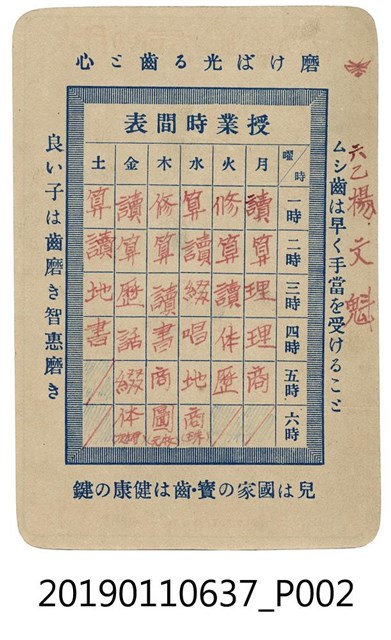 磨けば光る齒と心
六乙 楊文魁
ムシ齒は早く手當を受けること
授業時間表
曜時 月 火 水 木 金 土
一時 讀 修 算 修 讀 算
二時 算 算 讀 算 算 讀
三時 理 讀 綴 讀 歷 地
四時 理 体 唱 書 話 書
五時 商 歷 地 商 綴
六時 商 圖 体
良い子は齒磨き智惠磨き
兒は國家の寳・齒は健康の鍵
20190110637_P002